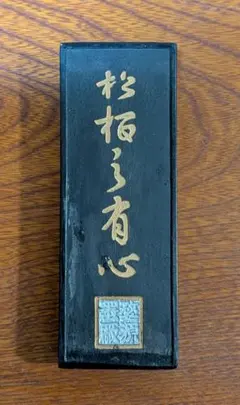 松栢之有心